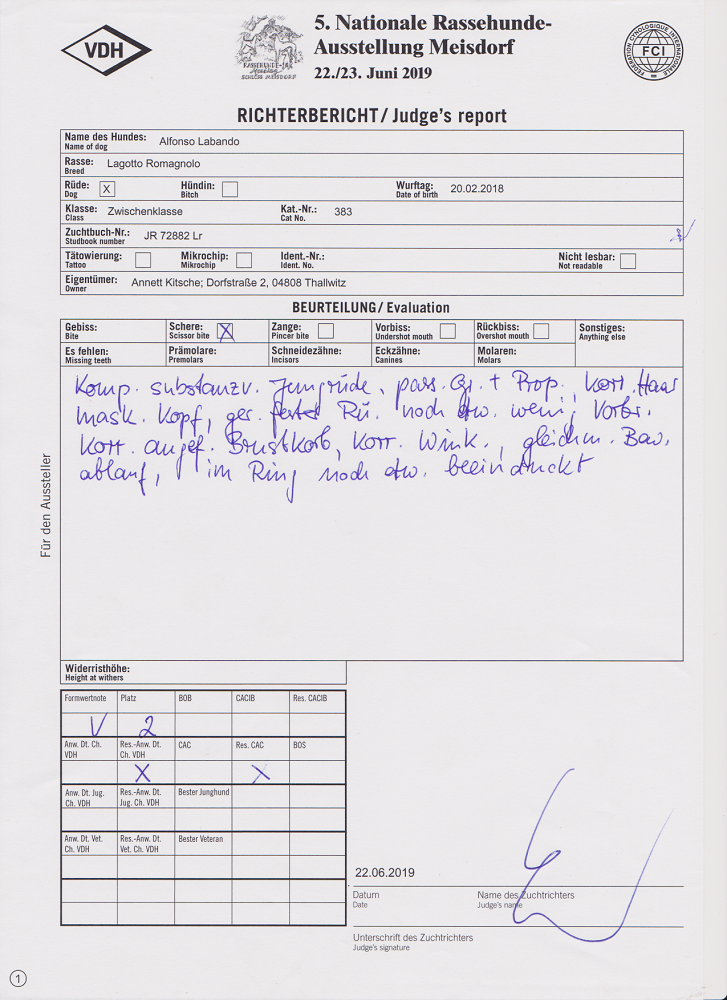 VDH
RASSEHUNDE-
SCHLOSS MEISDORF
5. Nationale Rassehunde-
Ausstellung Meisdorf
22./23. Juni 2019
FEDERATION CYNOLOGIQUE INTERNATIONALE
FCI
RICHTERBERICHT / Judge's report
Name des Hundes: Alfonso Labando
Name of dog
Rasse: Lagotto Romagnolo
Breed
Rüde: X Hündin: Wurftag: 20.02.2018
Dog Bitch Date of birth
Klasse: Zwischenklasse Kat.-Nr.: 383
Class Cat No.
Zuchtbuch-Nr.: JR 72882 Lr
Studbook number
Tätowierung: Mikrochip: Ident.-Nr.: Nicht lesbar:
Tattoo Mikrochip Ident. No. Not readable
Eigentümer: Annett Kitsche; Dorfstraße 2, 04808 Thallwitz
Owner
BEURTEILUNG / Evaluation
Gebiss: Schere: X Zange: Vorbiss: Rückbiss: Sonstiges:
Bite Scissor bite Pincer bite Undershot mouth Overshot mouth Anything else
Es fehlen: Prämolare: Schneidezähne: Eckzähne: Molaren:
Missing teeth Premolars Incisors Canines Molars
Komp. substanzv. Jungrüde, pass. Gr. + Prop., korr. Haar
mask. Kopf, ger. fester Rü. noch etw. wenig Vorbr.
Korr. angef. Brustkorb, korr. Wink., gleichm. Bew.
ablauf, im Ring noch etw. beeindruckt
Für den Aussteller
Widerristhöhe:
Height at withers
Formwertnote Platz BOB CACIB Res. CACIB
V 2
Anw. Dt. Ch. Res.-Anw. Dt. CAC Res. CAC BOS
VDH Ch. VDH
X X
Anw. Dt. Jug. Res.-Anw. Dt. Bester Junghund
Ch. VDH Jug. Ch. VDH
Anw. Dt. Vet. Res.-Anw. Dt. Bester Veteran
Ch. VDH Vet. Ch. VDH
22.06.2019
Datum Name des Zuchtrichters
Date Judge's name
Unterschrift des Zuchtrichters
Judge's signature
1